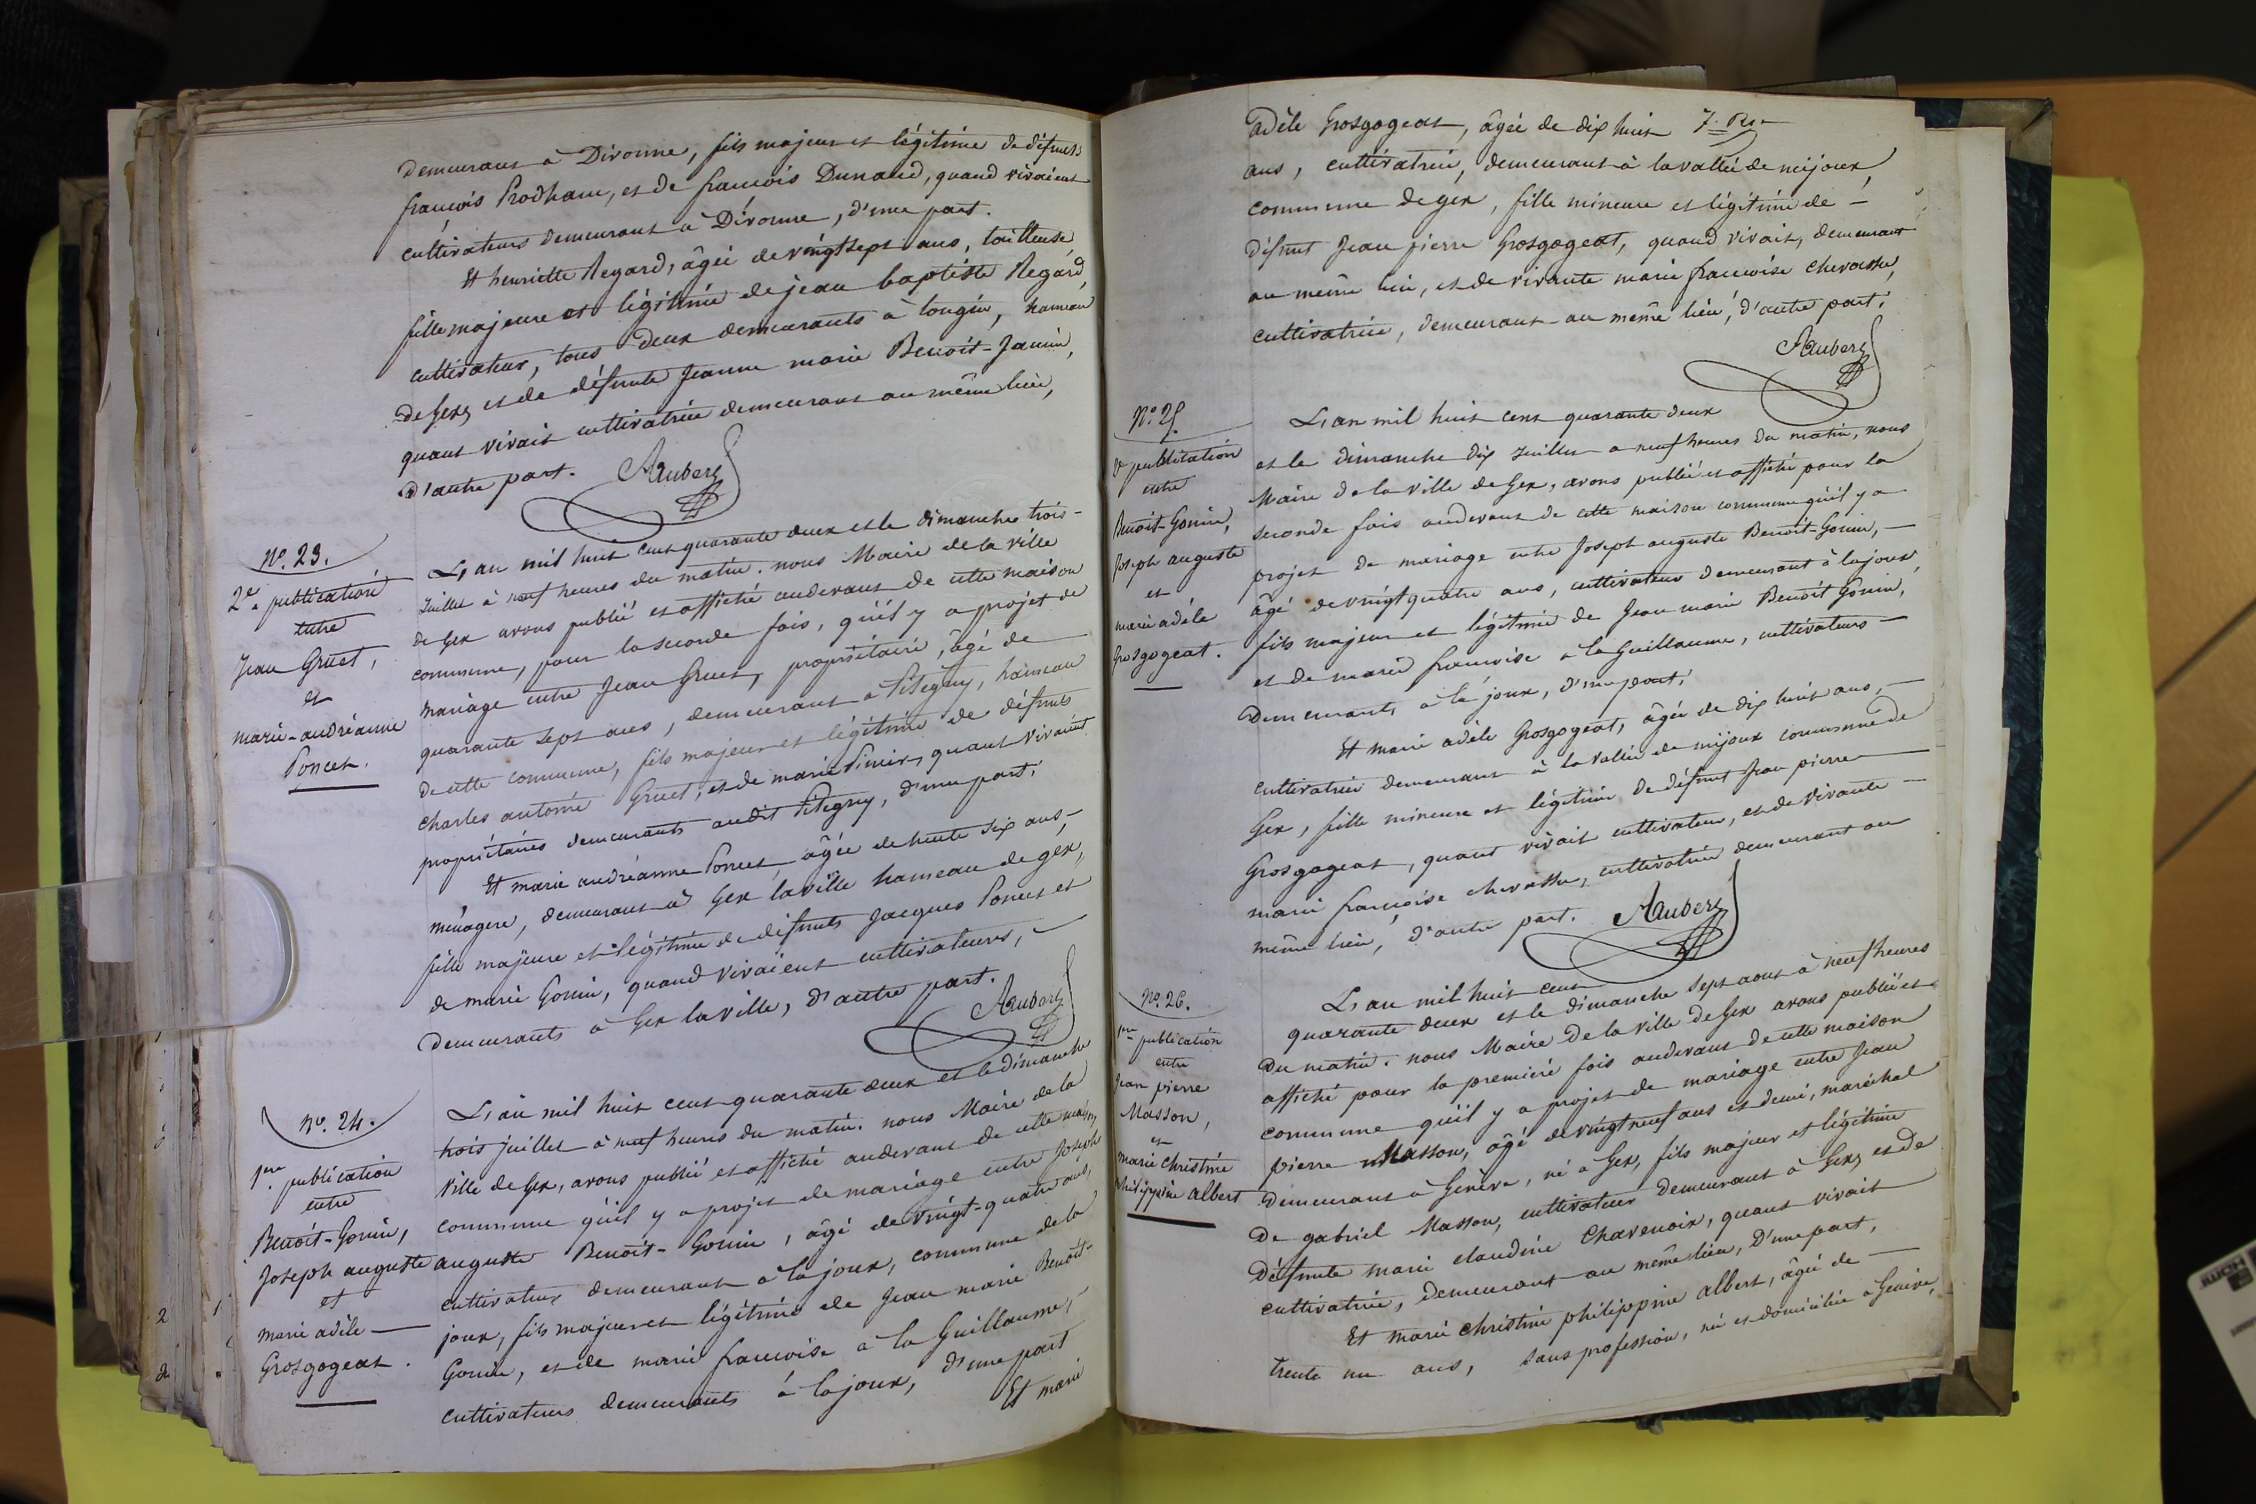 demeurant à Divonne, fils majeur et légitime de défunts
françois Prodham, et de françois Dunand, quand vivaient
cultivateurs demeurant à Divonne, d'une part.
Et henriette Regard, âgée de vingt sept ans, tailleuse,
fille majeure et légitime de jean baptiste Regard,
cultivateur, tous deux demeurants à tougin, hameau
de Gex, et de défunte Jeanne marie Benoit-Janin,
quant vivait cultivatrice demeurant au même lieu,
d'autre part. Aubery
No. 23.
2e. publication
entre
Jean Gruet,
et
marie-andréanne
Poncet.
L'an mil huit cent quarante deux et le dimanche trois-
Juillet à neuf heures du matin. nous Maire de la ville
de Gex avons publié et affiché audevant de cette maison
commune, pour la seconde fois, qu'il y a projet de
mariage entre Jean Gruet, propriétaire, âgé de
quarante sept ans, demeurant à Pitegny, hameau
de cette commune, fils majeur et légitime de défunts
charles antoine Gruet, et de marie Pinier, quant vivaient
propriétaires demeurants audit Pitegny, d'une part.
Et marie andréanne Poncet, âgée de trente six ans,-
ménagere, demeurant à Gex la ville hameau de gex,
fille majeure et légitime de défunts Jacques Poncet et
de marie Gonin, quand vivaient cultivateurs,-
demeurants à Gex la ville, d'autre part.
Aubery
no. 24.
1re publication
entre
Benoit-Gonin,
Joseph auguste
et
marie adèle
Grosgogeat.
L'an mil huit cent quarante deux et le dimanche
trois juillet à neuf heures du matin. nous Maire de la
Ville de Gex, avons publié et affiché audevant de cette maison
commune qu'il y a projet de mariage entre Joseph
auguste Benoit-Gonin, âgé de vingt-quatre ans,
cultivateur demeurant à la joux, commune de la
joux, fils majeur et légitime de Jean marie Benoit-
Gonin, et de marie françoise à la Guillaume,-
cultivateurs demeurants à la joux, d'une part
Et marie
adèle Grosgogeat, âgée de dix huit
ans, cultivatrice, demeurant à la vallée de mijoux,
commune de gex, fille mineure et légitime de -
défunt Jean pierre Grosgogeat, quand vivait, demeurant
au même lieu, et de vivante marie françoise chevassu,
cultivatrice, demeurant au même lieu, d'autre part.
Aubery
No. 25.
publication
entre
Benoit-Gonin,
Joseph auguste
et
marie adèle
Grosgogeat.
L'an mil huit cent quarante deux
et le dimanche dix Juillet a neuf heures du matin, nous
Maire de la Ville de Gex, avons publié et affiché pour la
seconde fois audevant de cette maison commune qu'il y a
projet de mariage entre Joseph auguste Benoit-Gonin,-
âgé de vingt quatre ans, cultivateur demeurant à la joux,
fils majeur et légitime de Jean marie Benoit Gonin,
et de marie françoise a la Guillaume, cultivateurs-
demeurants à la joux, d'une part.
Et marie adèle Grosgogeat, âgée de dix huit ans,-
cultivatrice demeurant à la vallée de mijoux commune de
Gex, fille mineure et légitime de défunt Jean pierre
Grosgogeat, quant vivait cultivateur, et de vivante -
marie françoise chevassu, cultivatrice demeurant au
même lieu, d'autre part. Aubery
No. 26.
1re publication
entre
Jean pierre
Masson,
et
marie christine
philippine albert
L'an mil huit cent
quarante deux et le dimanche sept aout à neuf heures
du matin. nous Maire de la ville de Gex avons publié et
affiché pour la première fois audevant de cette maison
commune qu'il y a projet de mariage entre Jean
pierre Masson, âgé de vingt neuf ans et demi, maréchal
demeurant à Genève, né a Gex, fils majeur et légitime
de gabriel Masson, cultivateur demeurant à Gex, et de
défunte marie claudine Chavenoix, quant vivait
cultivatrice, demeurant au même lieu, d'une part,
Et marie christine philippine albert, âgée de -
trente un ans, sans profession, née et domiciliée a Genève,